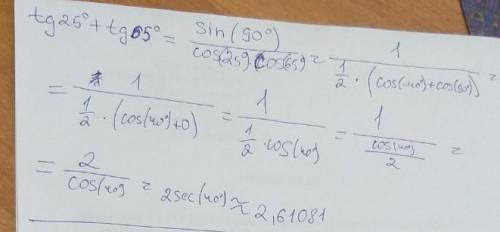 tg25° + tg65° = sin(90°) / cos(25°)·cos(65°) = 1 / (1/2 · (cos(-40°)+cos(90°))) =
= 1 / (1/2 · (cos(40°)+0)) = 1 / (1/2 · cos(40°)) = 1 / (cos(40°)/2) =
= 2 / cos(40°) = 2sec(40°) ≈ 2,61081